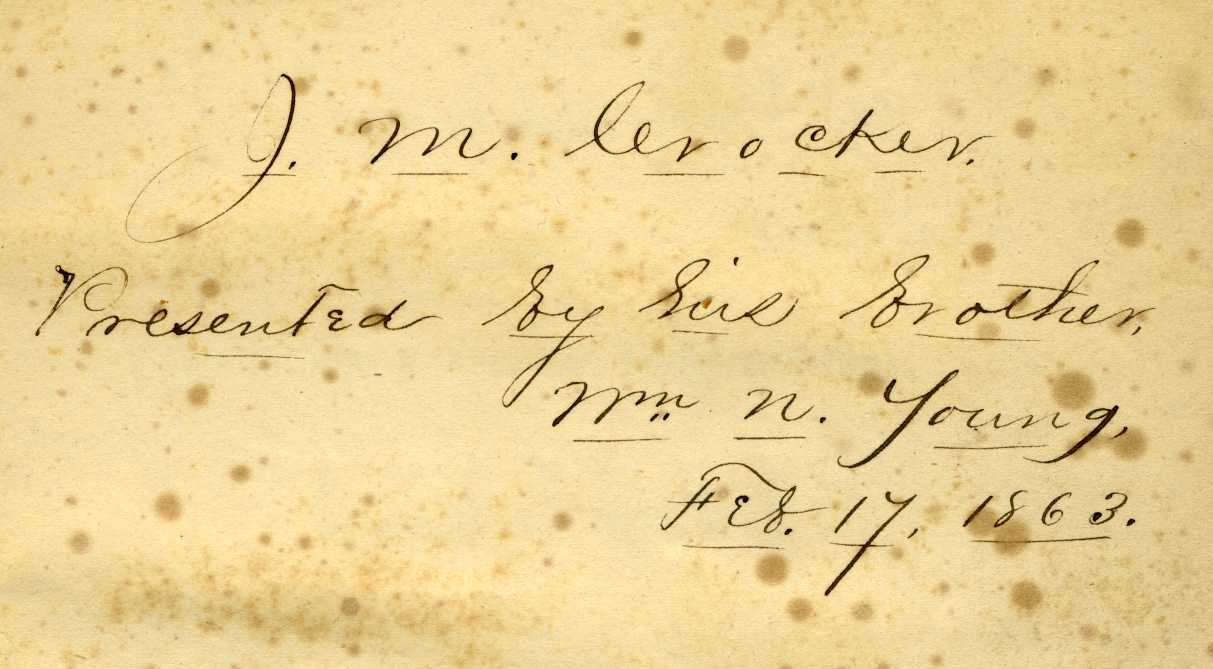 J. M. Crocker.
Presented by his brother,
Wm. N. Young,
Feb. 17, 1863.